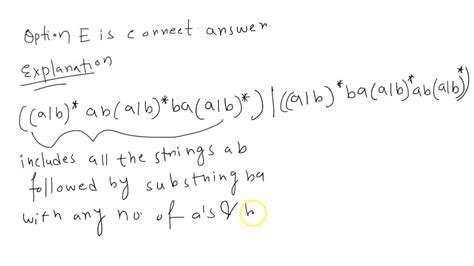 Option E is correct answer.
Explanation
((a|b)* ab(a|b)*ba(a|b)*) | ((a|b)*ba(a|b)*ab(a|b)*)
includes all the strings ab
followed by substring ba
with any no. of a's & b